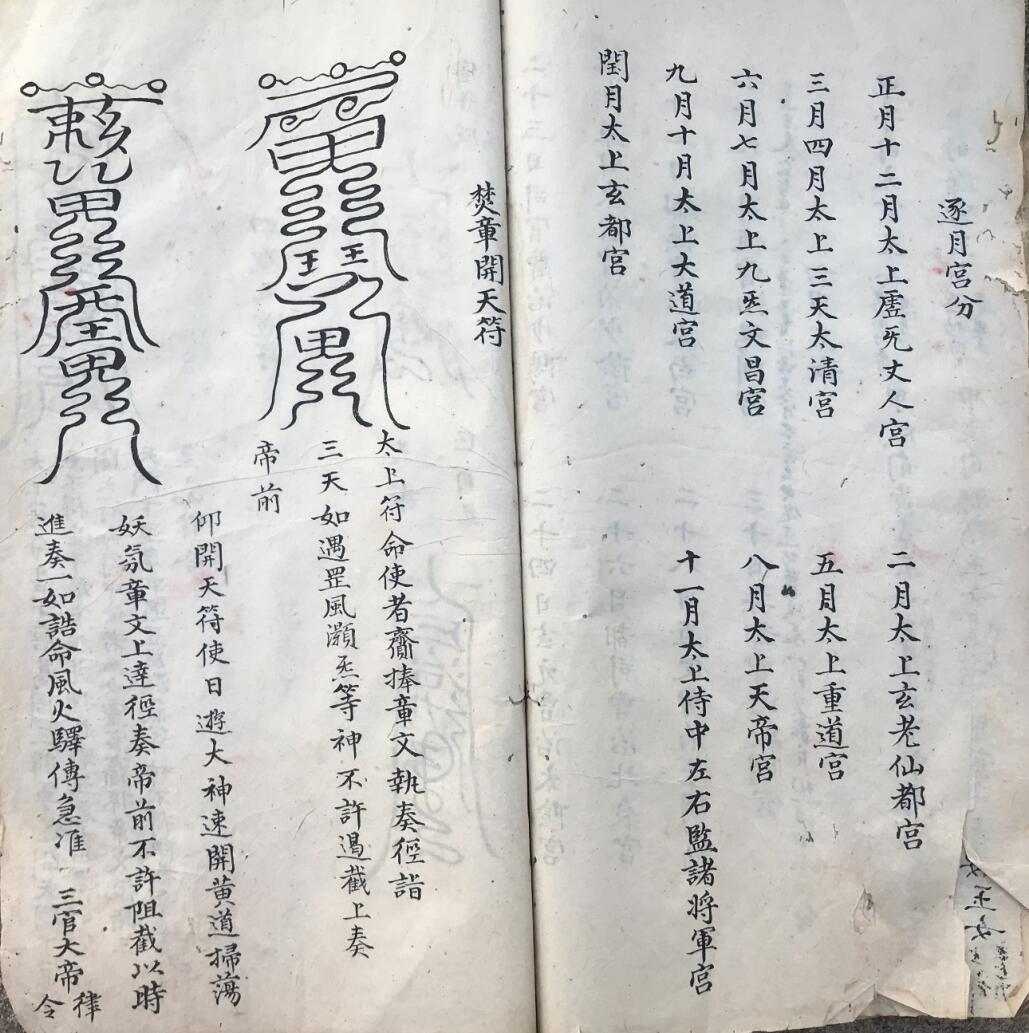 逐月宫分
正月十二月太上虛旡丈人宮
二月太上玄老仙都宮
三月四月太上三天太清宮
五月太上重道宮
六月七月太上九炁文昌宮
八月太上天帝宮
九月十月太上大道宮
十一月太上侍中左右監諸将軍宮
閏月太上玄都宮
焚章開天符
太上符命使者齎捧章文執奏徑詣
三天如遇罡風灝炁等神不許遏截上奏
帝前
仰開天符使日遊大神速開黄道掃蕩
妖氛章文上達徑奏帝前不許阻截以時
進奏一如誥命風火驛傳急准 三官大帝律令